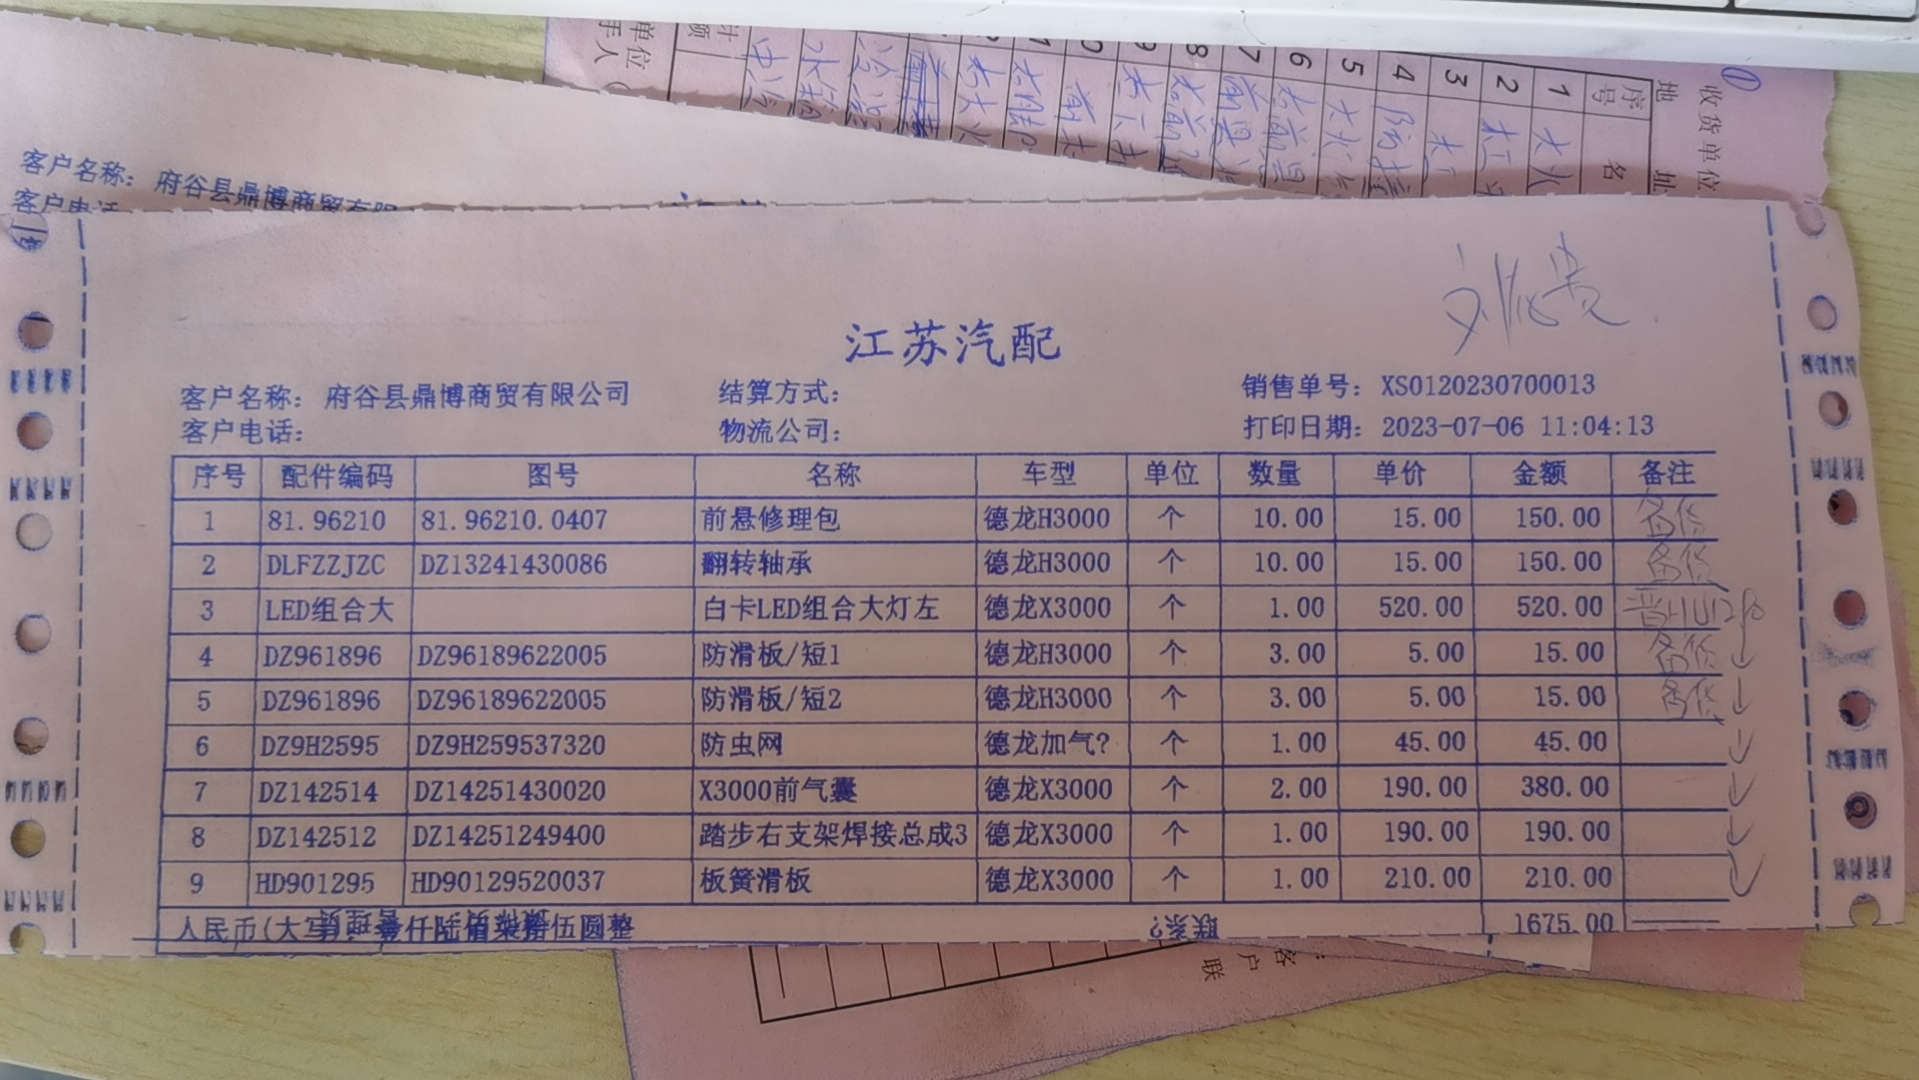 收货单位
地址
序号 名
1
2
3
4
5
6
7
8
客户名称: 府谷县鼎博商贸有限
客户电话
江苏汽配
客户名称: 府谷县鼎博商贸有限公司 结算方式: 销售单号: XS0120230700013
客户电话: 物流公司: 打印日期: 2023-07-06 11:04:13
序号 配件编码 图号 名称 车型 单位 数量 单价 金额 备注
1 81.96210 81.96210.0407 前悬修理包 德龙H3000 个 10.00 15.00 150.00 备货
2 DLFZZJZC DZ13241430086 翻转轴承 德龙H3000 个 10.00 15.00 150.00 备货
3 LED组合大 白卡LED组合大灯左 德龙X3000 个 1.00 520.00 520.00
4 DZ961896 DZ96189622005 防滑板/短1 德龙H3000 个 3.00 5.00 15.00 备货
5 DZ961896 DZ96189622005 防滑板/短2 德龙H3000 个 3.00 5.00 15.00 备货
6 DZ9H2595 DZ9H259537320 防虫网 德龙加气? 个 1.00 45.00 45.00
7 DZ142514 DZ14251430020 X3000前气囊 德龙X3000 个 2.00 190.00 380.00
8 DZ142512 DZ14251249400 踏步右支架焊接总成3 德龙X3000 个 1.00 190.00 190.00
9 HD901295 HD90129520037 板簧滑板 德龙X3000 个 1.00 210.00 210.00
人民币(大写): 壹仟陆佰柒拾伍圆整 联系? 1675.00
客户联